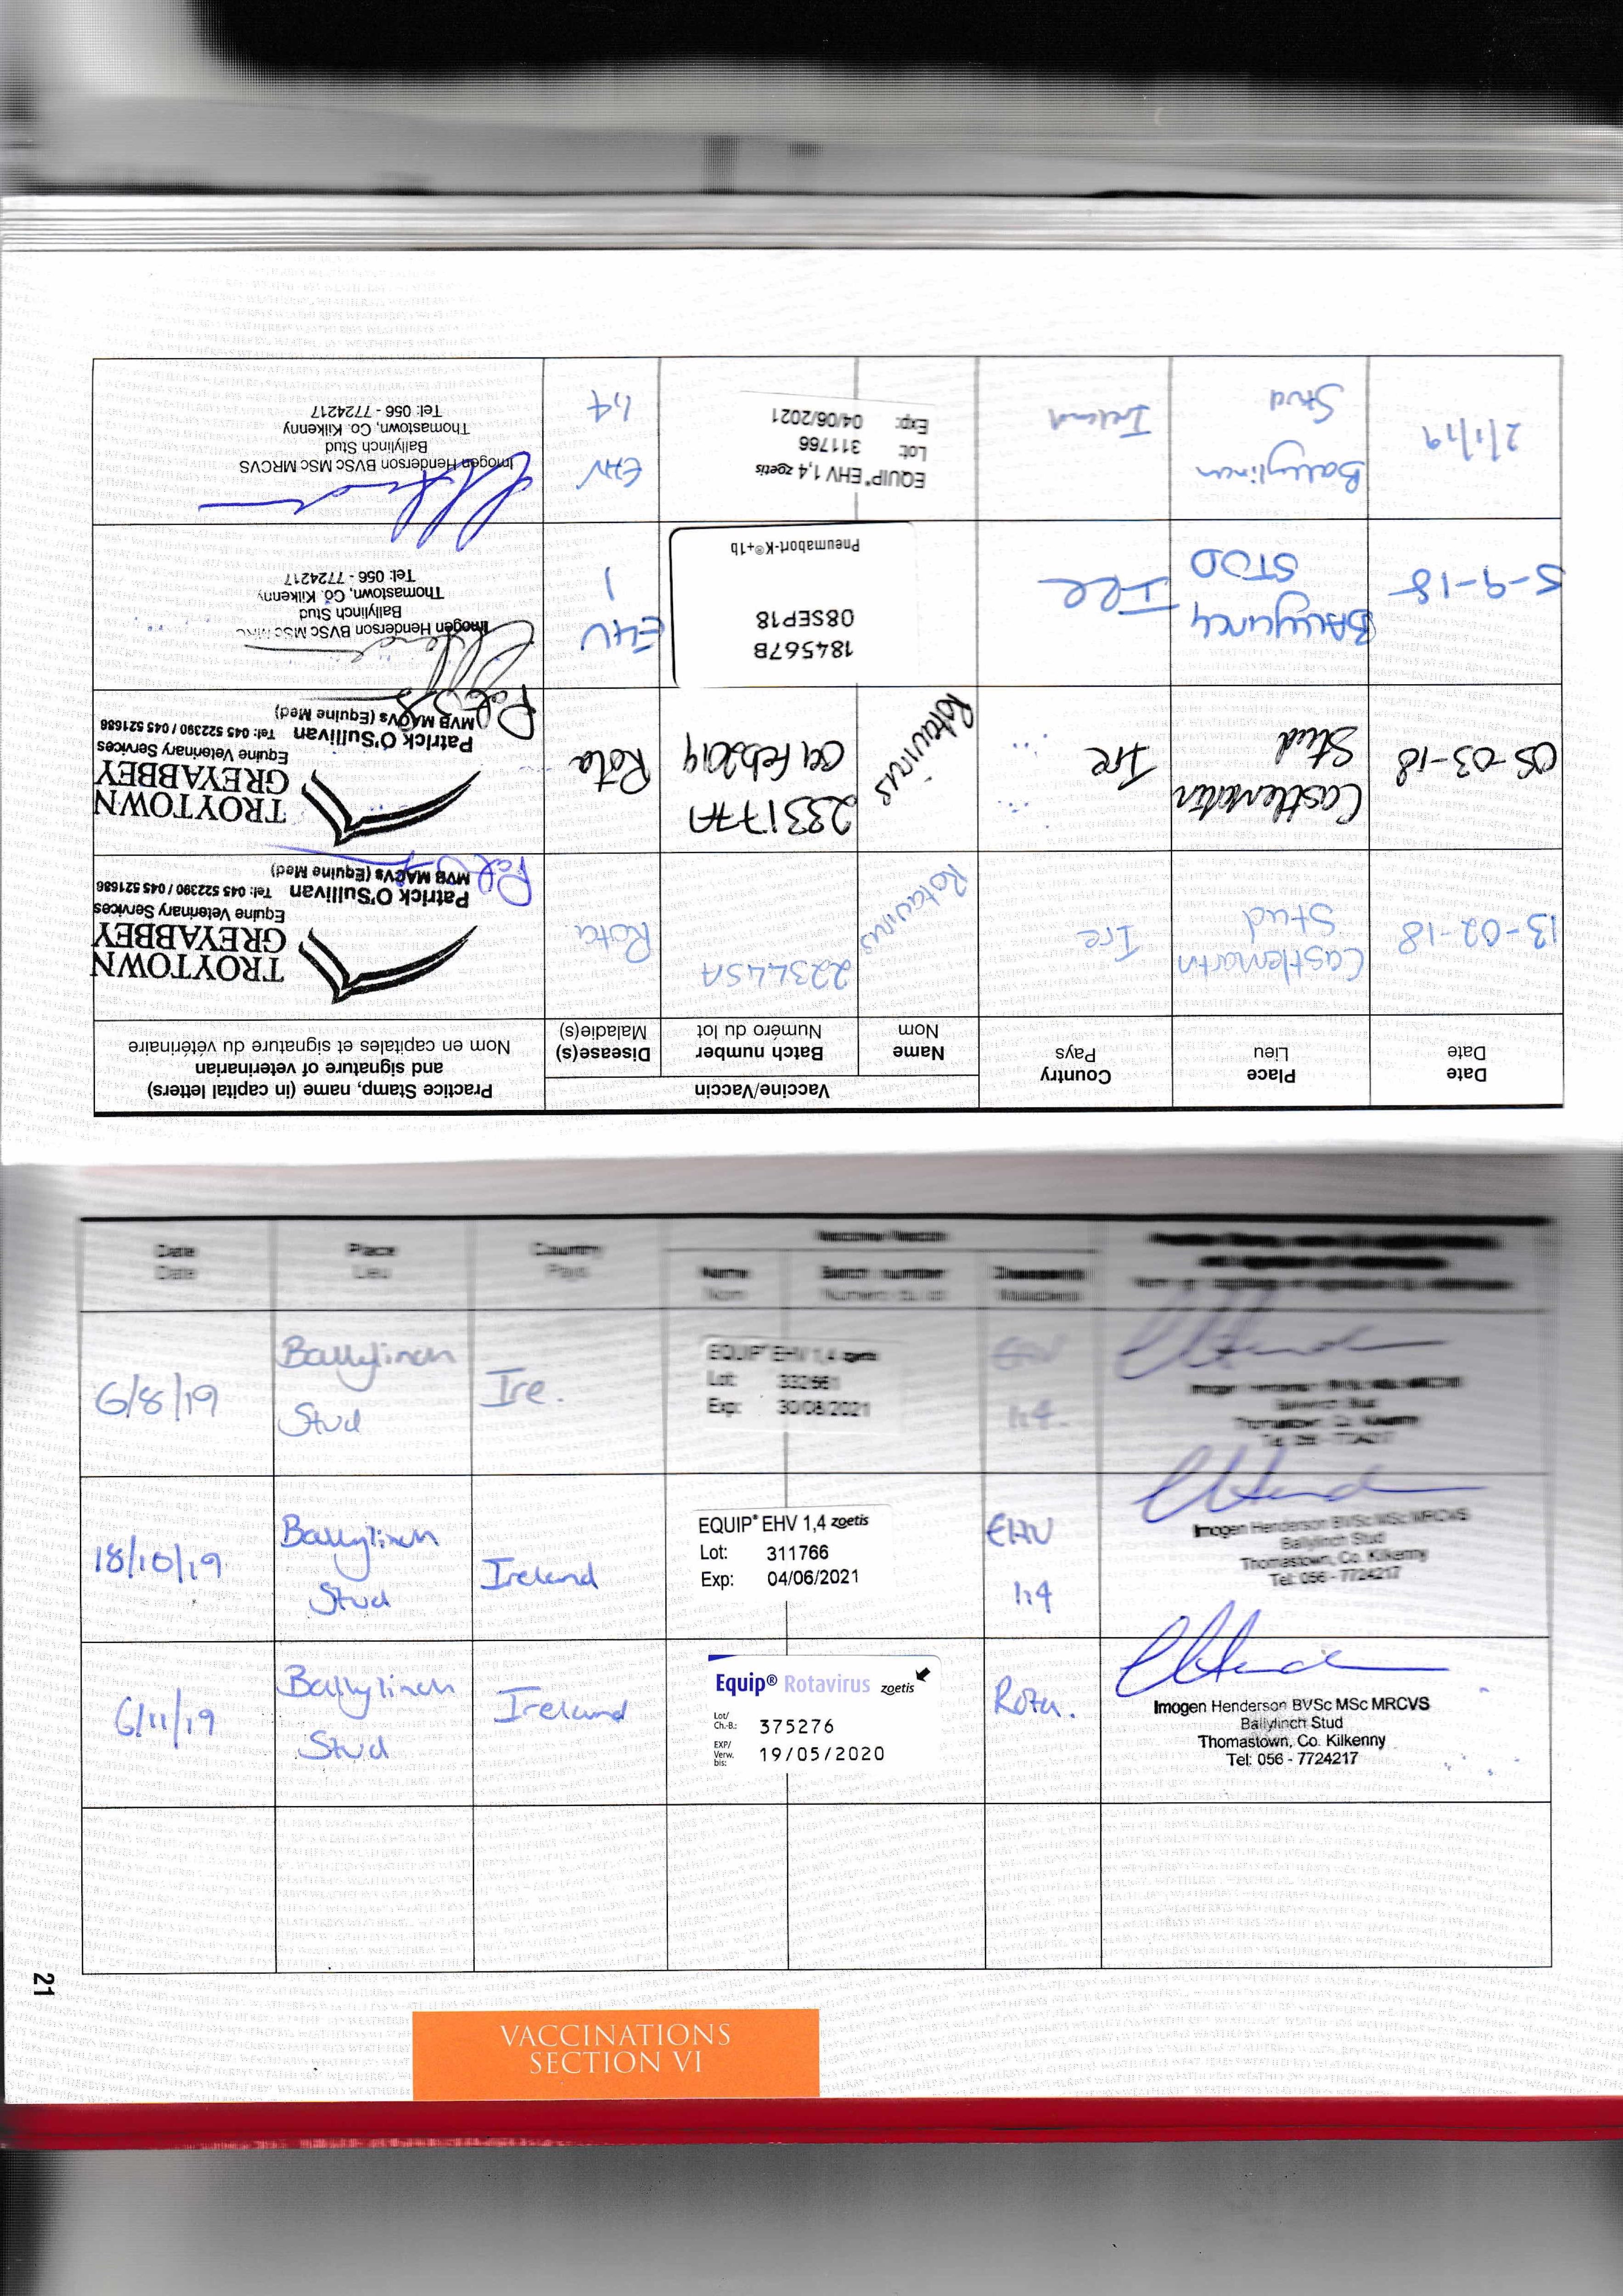 Date
Date
Place
Lieu
Country
Pays
Vaccine/Vaccin
Name
Nom
Batch number
Numéro du lot
Disease(s)
Maladie(s)
Practice Stamp, name (in capital letters)
and signature of veterinarian
Nom en capitales et signature du vétérinaire
13-02-18
Castlemartin
Stud
Ire
Rotavirus
223445A
Rota
TROYTOWN
GREYABBEY
Equine Veterinary Services
Patrick O'Sullivan Tel: 045 522390 / 045 521686
MVB MACVs (Equine Med)
05-03-18
Castlemartin
Stud
Ire
Rotavirus
233177A
09 Feb 2019
Rota
TROYTOWN
GREYABBEY
Equine Veterinary Services
Patrick O'Sullivan Tel: 045 522390 / 045 521686
MVB MACVs (Equine Med)
5-9-18
BALLYLINCH
STUD
IRE
184567B
08SEP18
Pneumabort-K®+1b
EHV
1
Imogen Henderson BVSc MSc MRC
Ballylinch Stud
Thomastown, Co. Kilkenny
Tel: 056 - 7724217
2/1/19
Ballylinch
Stud
Ireland
EQUIP® EHV 1,4 zoetis
Lot: 311766
Exp: 04/06/2021
EHV
1,4
Imogen Henderson BVSC MSC MRCVS
Ballylinch Stud
Thomastown, Co. Kilkenny
Tel: 056 - 7724217
Date
Date
Place
Lieu
Country
Pays
Name
Nom
Batch number
6/8/19
Ballylinch
Stud
Ire.
EQUIP® EHV 1,4 zoetis
Lot: 332661
Exp: 30/08/2021
EHV
1,4.
18/10/19
Ballylinch
Stud
Ireland
EQUIP® EHV 1,4 zoetis
Lot: 311766
Exp: 04/06/2021
EHV
1,4
Imogen Henderson BVSc MSc MRCVS
Ballylinch Stud
Thomastown, Co. Kilkenny
Tel: 056 - 7724217
6/11/19
Ballylinch
Stud
Ireland
Equip® Rotavirus zoetis
Lot/
Ch.-B.: 375276
EXP/
Verw.
bis: 19/05/2020
Rota.
Imogen Henderson BVSc MSc MRCVS
Ballylinch Stud
Thomastown, Co. Kilkenny
Tel: 056 - 7724217
21
VACCINATIONS
SECTION VI